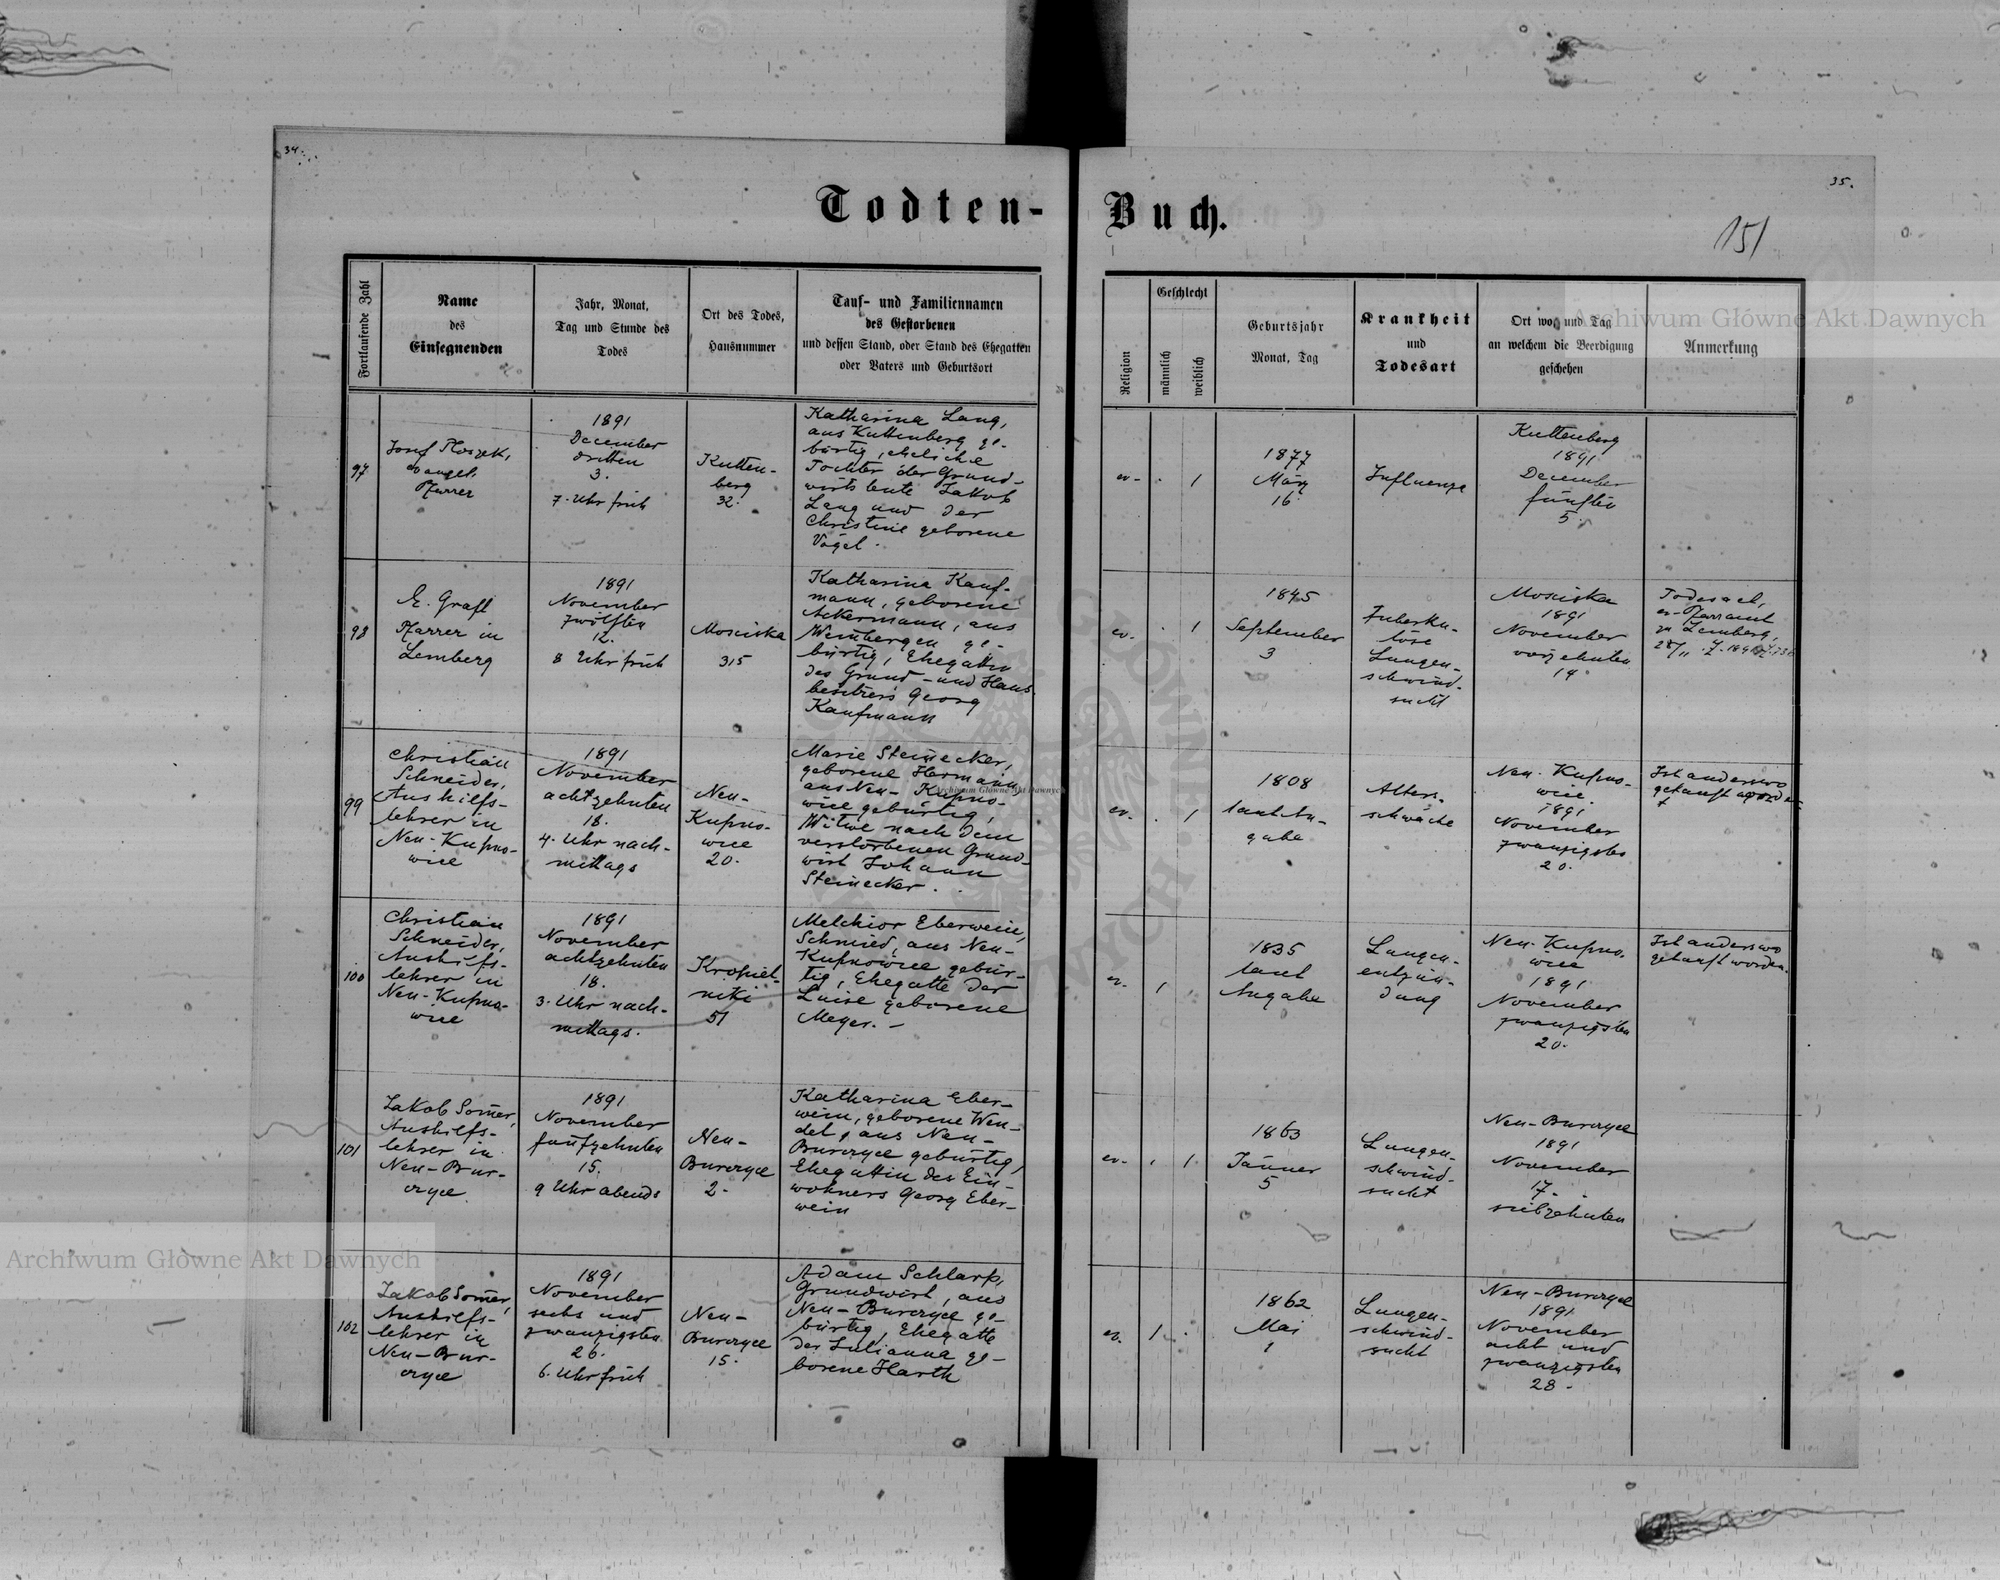 34.
35.
Todten-Buch.
151
Fortlaufende Zahl
Name
des
Einsegnenden
Jahr, Monat,
Tag und Stunde des
Todes
Ort des Todes,
Hausnummer
Tauf- und Familiennamen
des Gestorbenen
und dessen Stand, oder Stand des Ehegatten
oder Vaters und Geburtsort
Religion
Geschlecht
männlich
weiblich
Geburtsjahr
Monat, Tag
Krankheit
und
Todesart
Ort wo, und Tag
an welchem die Beerdigung
geschehen
Anmerkung
97
Josef Ploszek,
evangel.
Pfarrer
1891
December
dritten
3.
7. Uhr früh
Kutten-
berg
32.
Katharina Lang,
aus Kuttenberg ge-
bürtig, eheliche
Tochter der Grund-
wirtsleute Jakob
Lang und der
Christine geborene
Vogel.
ev.
1
1877
März
16
Influenza
Kuttenberg
1891
December
fünften
5.
98
E. Grafl
Pfarrer in
Lemberg
1891
November
zwölften
12.
8 Uhr früh
Mosciska
315
Katharina Kauf-
mann, geborene
Ackermann, aus
Weinbergen ge-
bürtig, Ehegattin
des Grund- und Haus-
besitzers Georg
Kaufmann
ev.
1
1845
September
3
Tuberku-
löse
Lungen-
schwind-
sucht
Mosciska
1891
November
vierzehnten
14.
Pfarramt
zu Lemberg,
28/11
99
Christian
Schneider,
Aushilfs-
lehrer in
Neu-Kupno-
wice
1891
November
achtzehnten
18.
4. Uhr nach-
mittags
Neu-
Kupno-
wice
20.
Marie Steinecker,
geborene Hermann,
aus Neu-Kupno-
wice gebürtig,
Witwe nach dem
verstorbenen Grund-
wirt Johann
Steinecker.
ev.
1
1808
laut An-
gabe
Alters-
schwäche
Neu-Kupno-
wice.
1891
November
zwanzigsten
20.
Ist anderswo
getauft worden
100
Christian
Schneider,
Aushilfs-
lehrer in
Neu-Kupno-
wice
1891
November
achtzehnten
18.
3. Uhr nach-
mittags.
Kropiel-
niki
51
Melchior Eberwein,
Schmied, aus Neu-
Kupnowice gebür-
tig, Ehegatte der
Luise geborene
Meyer.-
ev.
1
1835
laut
Angabe
Lungen-
entzün-
dung
Neu-Kupno-
wice
1891
November
zwanzigsten
20.
Ist anderswo
getauft worden.
101
Jakob Som̄er,
Aushilfs-
lehrer in
Neu-Bur-
czyce
1891
November
fünfzehnten
15.
9 Uhr abends
Neu-
Burczyce
2.
Katharina Eber-
wein, geborene Wen-
del, aus Neu-
Burczyce gebürtig,
Ehegattin des Ein-
wohners Georg Eber-
wein
ev.
1.
1863
Jänner
5
Lungen-
schwind-
sucht
Neu-Burczyce
1891
November
17.
siebzehnten
102
Jakob Som̄er,
Aushilfs-
lehrer in
Neu-Bur-
czyce
1891
November
sechs und
zwanzigsten
26.
6. Uhr früh
Neu-
Burczyce
15.
Adam Schlarp,
Grundwirt, aus
Neu-Burczyce ge-
bürtig, Ehegatte
der Julianna ge-
borene Harth
ev.
1
1862
Mai
1
Lungen-
schwind-
sucht
Neu-Burczyce
1891
November
acht und
zwanzigsten
28.
Archiwum Główne Akt Dawnych
Archiwum Główne Akt Dawnych
Archiwum Główne Akt Dawnych